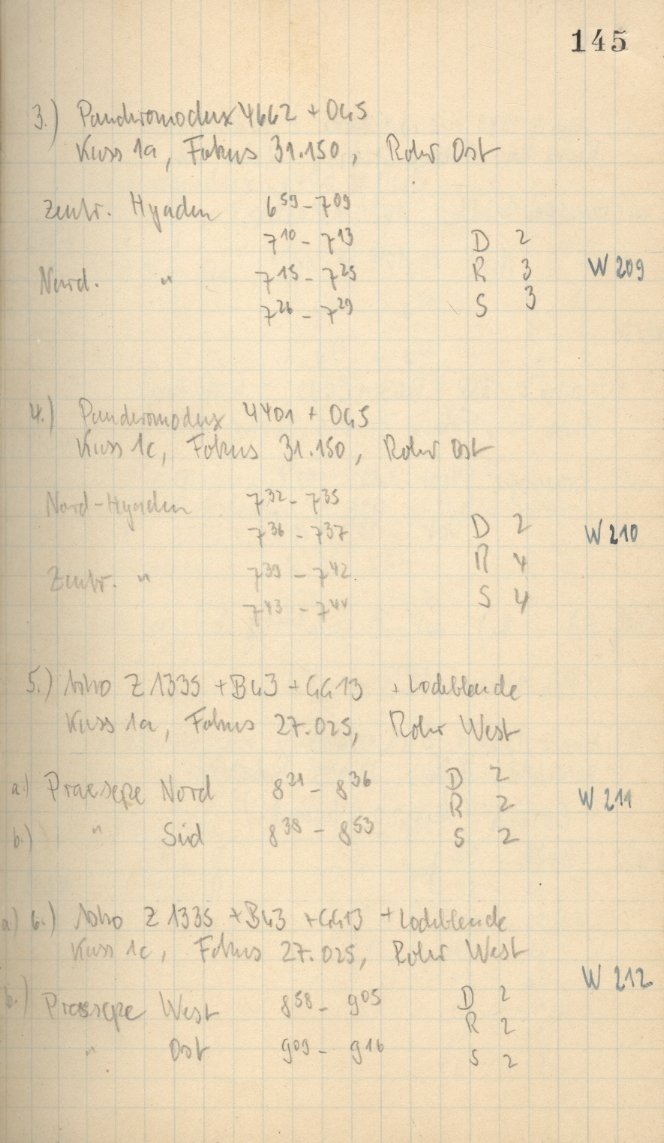 145
3.) Panchromodux 4662 + OG5
Kass 1a, Fokus 31.150, Rohr Ost
Zentr. Hyaden 6 59 - 7 09
7 10 - 7 13 D 2
Nord. " 7 15 - 7 25 R 3 W 209
7 26 - 7 29 S 3
4.) Panchromodux 4401 + OG5
Kass 1c, Fokus 31.150, Rohr Ost
Nord-Hyaden 7 32 - 7 35
7 36 - 7 37 D 2 W 210
Zentr. " 7 39 - 7 42 R 4
7 43 - 7 44 S 4
5.) Z 1335 + BG3 + GG13 + Lochblende
Kass 1a, Fokus 27.025, Rohr West
a.) Praesepe Nord 8 21 - 8 36 D 2
R 2 W 211
b.) " Süd 8 38 - 8 53 S 2
a) 6.) Z 1335 + BG3 + GG13 + Lochblende
Kass 1c, Fokus 27.025, Rohr West
W 212
b.) Praesepe West 8 58 - 9 05 D 2
R 2
" Ost 9 09 - 9 16 S 2